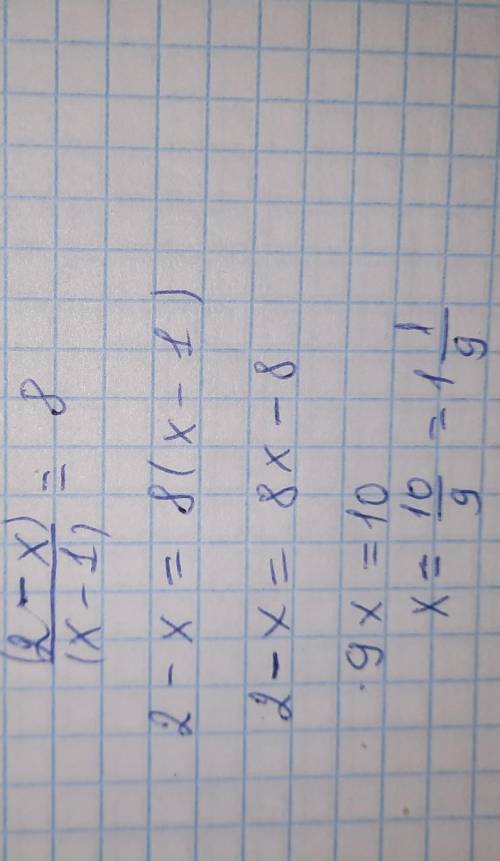 (2 - x)/(x - 1) = 8
2 - x = 8(x - 1)
2 - x = 8x - 8
9x = 10
x = 10/9 = 1 1/9